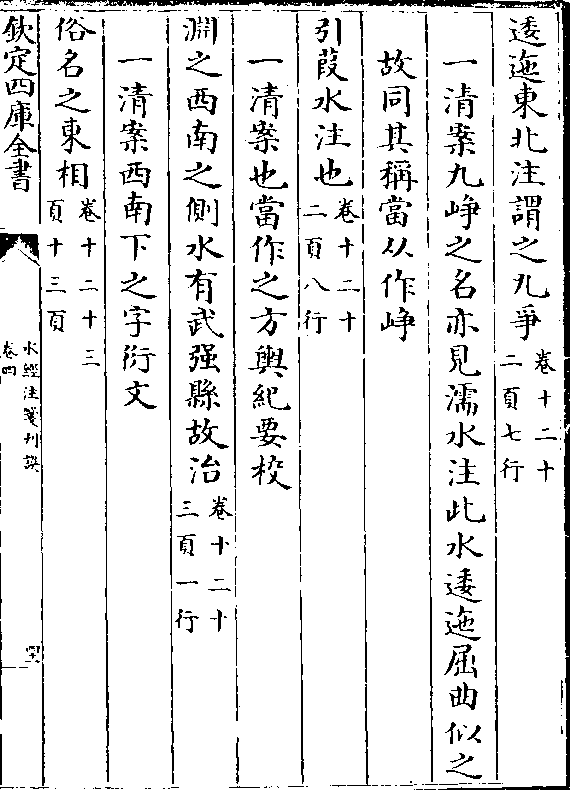 逶迤東北注謂之九爭卷十二十二頁七行
一清案九崢之名亦見濡水注此水逶迤屈曲似之
故同其稱當从作崢
引葭水注也卷十二十二頁八行
一清案也當作之方輿紀要校
淵之西南之側水有武强縣故治卷十二十三頁一行
一清案西南下之字衍文
俗名之東相卷十二十三頁十三頁
欽定四庫全書
水經注箋刊誤
卷四